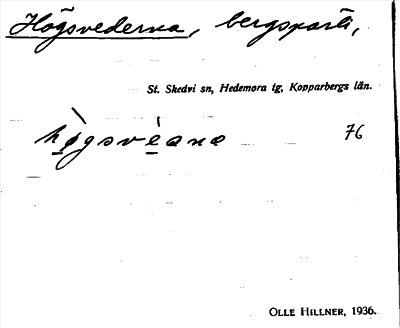 Högsvederna, bergsparti,
St. Skedvi sn, Hedemora tg, Kopparbergs län.
hø̀gsvéana 76
OLLE HILLNER, 1936.